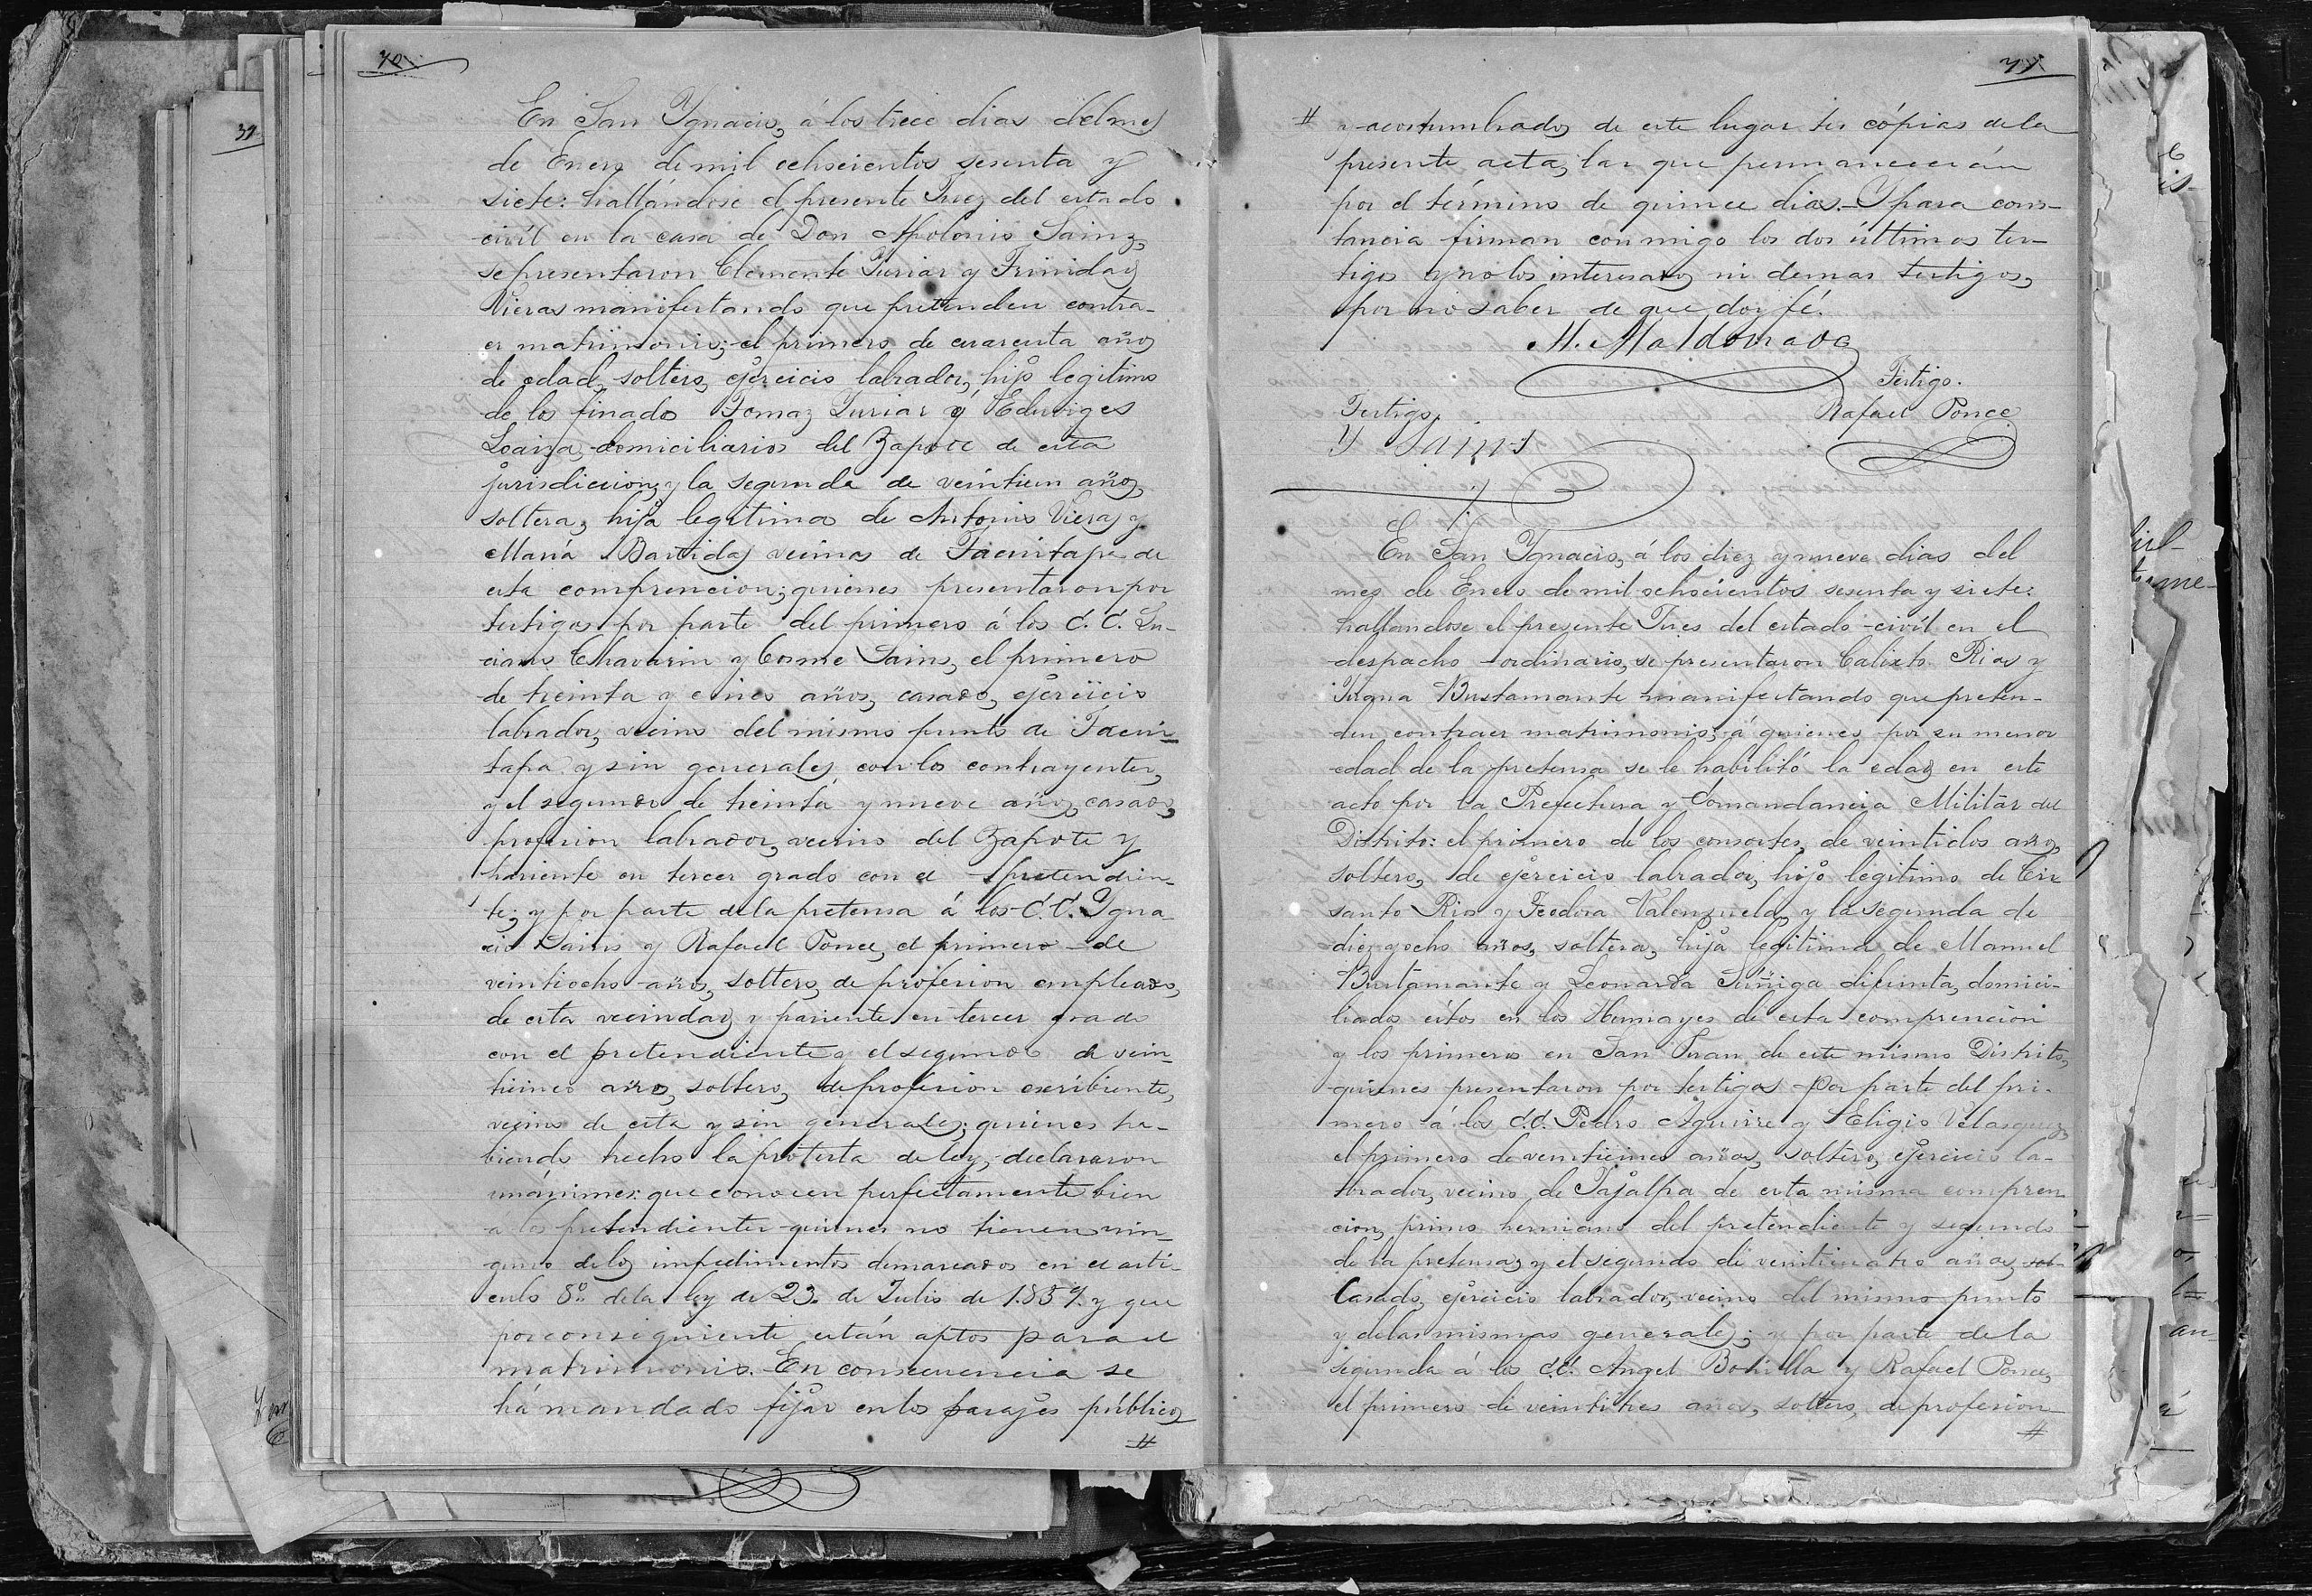 70
En San Ygnacio, á los trece dias del mes
de Enero de mil ochocientos sesenta y
siete: hallándose el presente Juez del estado
civíl en la casa de Don Apolonio Sainz,
se presentaron Clemente Yuriar y Trinidad
Vieras manifestando que pretenden contra-
er matrimonio; el primero de cuarenta años
de edad, soltero, ejercicio labrador, hijo legitimo
de los finados Tomaz Yuriar y Eduviges
Loaiza, domiciliarios del Zapote de esta
jurisdiccion, y la segunda de veintiun años,
soltera, hija legitima de Antonio Vieras y
María Bastidas vecinas de Tacuitapa de
esta comprencion; quienes presentaron por
testigos por parte del primero á los C. C. Lu-
ciano Chavarin y Cosme Sains, el primero
de treinta y cinco años, casado, ejercicio
labrador, vecino del mismo punto de Tacui-
tapa y sin generales con los contrayentes,
y el segundo de treinta y nueve años, casado,
profesion labrador, vecino del Zapote y
pariente en tercer grado con el pretendien-
te; y por parte de la pretensa á los C. C. Ygna-
cio Sains y Rafael Ponce, el primero de
veintiocho años, soltero, de profesion empleado,
de esta vecindad y pariente en tercer grado
con el pretendiente y el segundo de vein-
ticinco años, soltero, de profesion escribiente,
vecino de esta y sin generales; quienes ha-
biendo hecho la protesta de ley, declararon
unánimes: que conocen perfectamente bien
a los pretendientes quienes no tienen nin-
guno de los impedimentos demarcados en el arti-
culo 8º de la ley de 23. de Julio de 1.859. y que
por consiguiente están aptos para el
matrimonio. En consecuencia se
há mandado fijar en los parajes públicos
#
71
# acostumbrados de este lugar tres cópias de la
presente acta, las que permanecerán
por el término de quince dias.- Y para cons-
tancia firman conmigo los dos últimos tes-
tigos y no los interesados ni demas testigos,
por no saber de que doy fé.
M. Maldonado
Testigo.
Rafael Ponce
Testigo.
Y Sains
En San Ygnacio, á los diez y nueve dias del
mes de Enero de mil ochocientos sesenta y siete:
hallandose el presente Jues del estado civíl en el
despacho ordinario, se presentaron Calixto Rios y
Bustamante manifestando que preten-
den contraer matrimonio; á quienes por su menor
edad de la pretensa se le habilitó la edad en este
acto por la Prefectura y Comandancia Militar del
Distrito: el primero de los consortes, de veintidos años,
soltero, de ejercicio labrador, hijo legitimo de Cri
santo Rios y Teodora Valenzuela, y la segunda de
diez y ocho años, soltera, hija legitima de Manuel
Bustamante y Leonarda Suñiga difunta, domici-
liados éstos en los Humayes de esta comprencion
y los primeros en San Juan de este mismo Distrito,
quienes presentaron por testigos por parte del pri-
mero á los C.C. Pedro Aguirre y Eligio Velasquez,
el primero de veinticinco años, soltero, ejercicio la-
brador, vecino de Tajalpa de esta misma compren
cion, primo hermano del pretendiente y segundo
de la pretensa, y el segundo de veinticuatro años, sol-
Casado, ejercicio labrador, vecino del mismo punto
y de las mismas generales; y por parte de la
segunda á los C.C. Angel Bonilla y Rafael Ponce,
el primero de veintitres años, soltero, de profesion
#